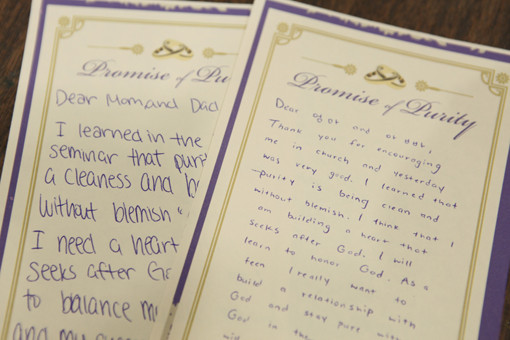 Promise of Pu
Dear Mom and Dad
I learned in the
seminar that puri
a cleaness and b
without blemish
I need a heart
seeks after Go
to balance my
and my
Promise of Purity
Dear
Thank you for encouraging
me in church and yesterday
was very good. I learned that
purity is being clean and
without blemish. I think that I
am building a heart that
seeks after God. I will
learn to honor God. As a
teen I really want to
build a relationship with
God and stay pure with
God in the